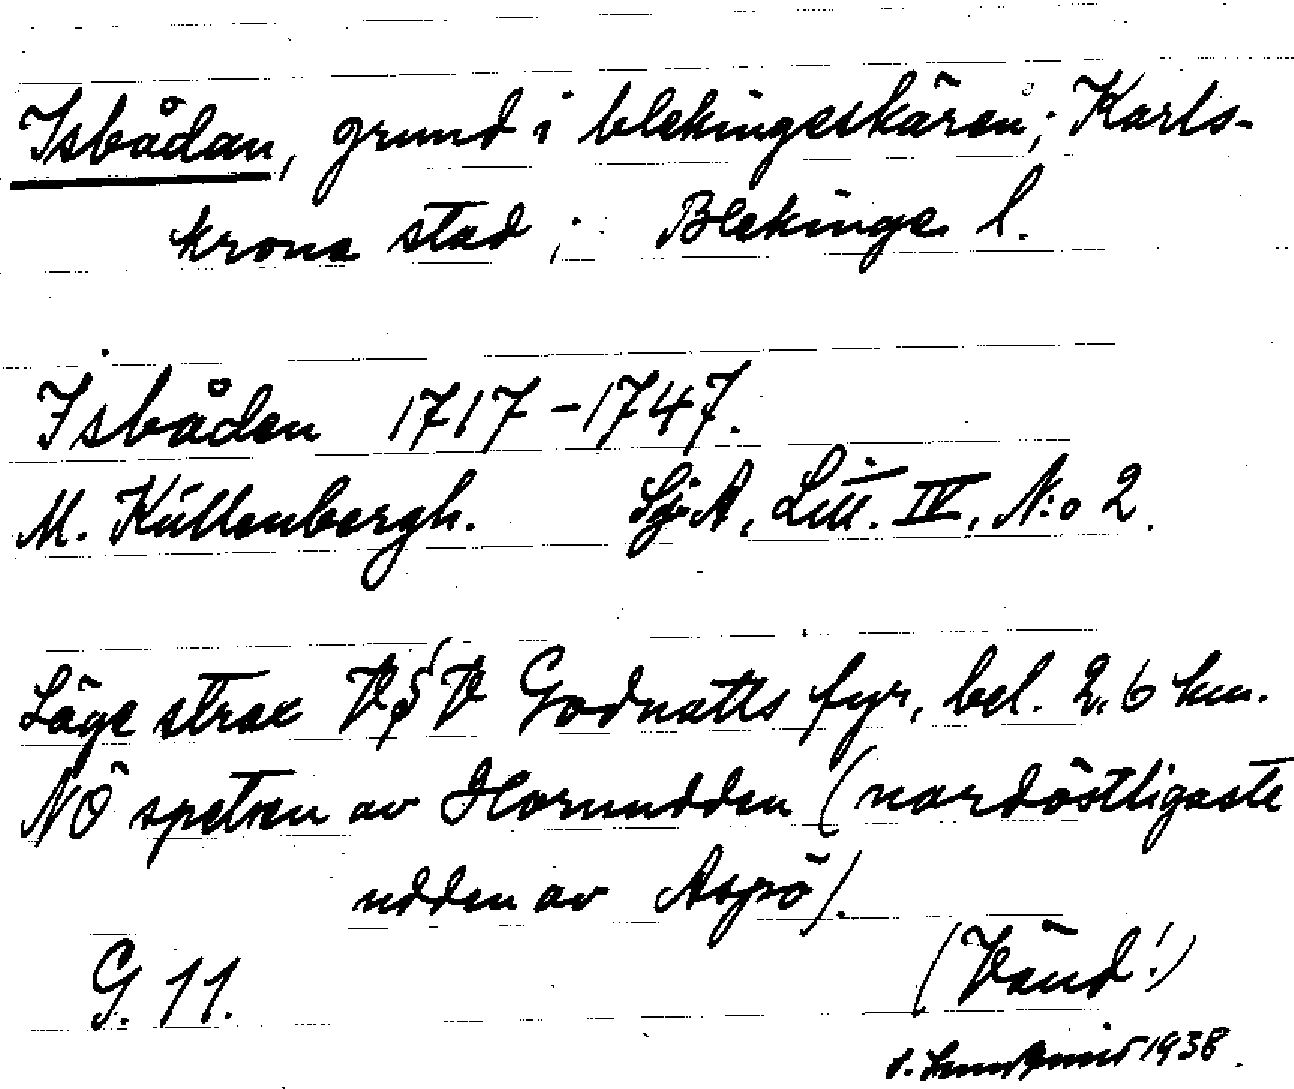 Isbådan, grund i blekingeskären; Karls-
krona stad; Blekinge l.
Isbåden 1717-1747.
M. Küllenbergh. SjA, Litt. IV, N:o 2.
Läge strax VSV Godnatts fyr, bel. 2,6 km.
NÖ spetsen av Horsudden (nordöstligaste
udden av Aspö).
G. 11. (Vänd!)
1938.